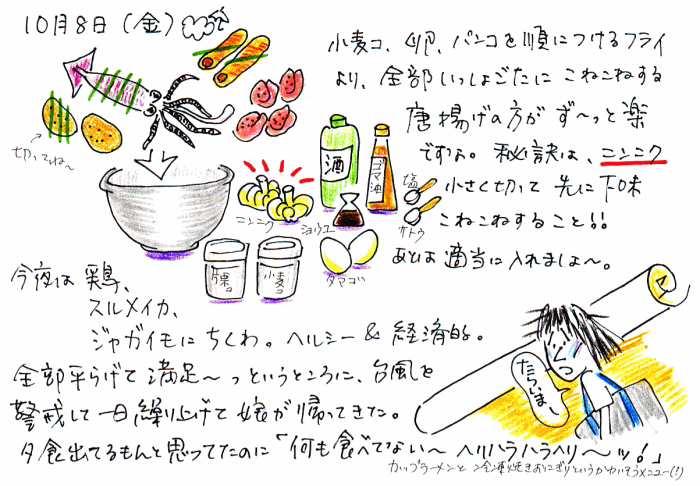 10月8日(金)
小麦コ、卵、パンコを順につけるフライ
より、全部いっしょごたにこねこねする
唐揚げの方がず〜っと楽
ですよ。秘訣は、ニンニク
小さく切って先に下味
こねこねすること!!
あとは適当に入れましょ〜。
切ってね〜
酒
ゴマ油
塩
サトウ
ニンニク
ショウユ
タマゴ
片栗コ
小麦コ
今夜は鶏、
スルメイカ、
ジャガイモにちくわ。ヘルシー&経済的。
全部平らげて満足〜っというところに、台風を
警戒して一日繰り上げて娘が帰ってきた。
夕食出てるもんと思ってたのに「何も食べてない〜ヘリハラハラヘリ〜ッ!」
カップラーメンと冷凍焼きおにぎりというかわいそうメニュー(!)
ただいま〜